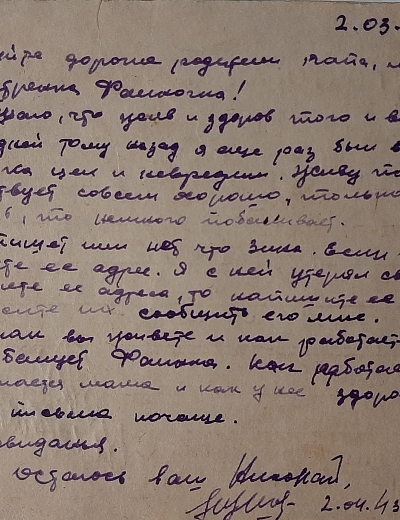 2.03.
дорогие родители папа, м
Фаиночка!
, что цел и здоров того и в
дней тому назад я еще раз был в
ка цел и невредим. Живу
твует совсем хорошо, только
, что немного побаливает.
пишет или нет что Зина. Если
те ее адрес. Я с ней утерял св
ее адреса, то напишите ее
их сообщить его мне.
как вы живете и как работает
Фаина. Как работае
мама и как у нее здоро
письма почаще.
видания.
остаюсь ваш Николай,
2.04.43